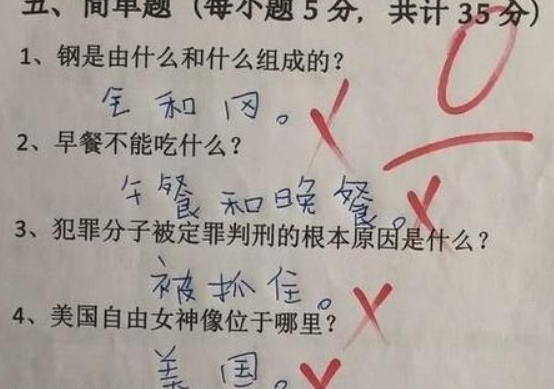 五、简单题（每小题5分，共计35分）
0
1、钢是由什么和什么组成的？
金和冈。
2、早餐不能吃什么？
午餐和晚餐。
3、犯罪分子被定罪判刑的根本原因是什么？
被抓住。
4、美国自由女神像位于哪里？
美国。